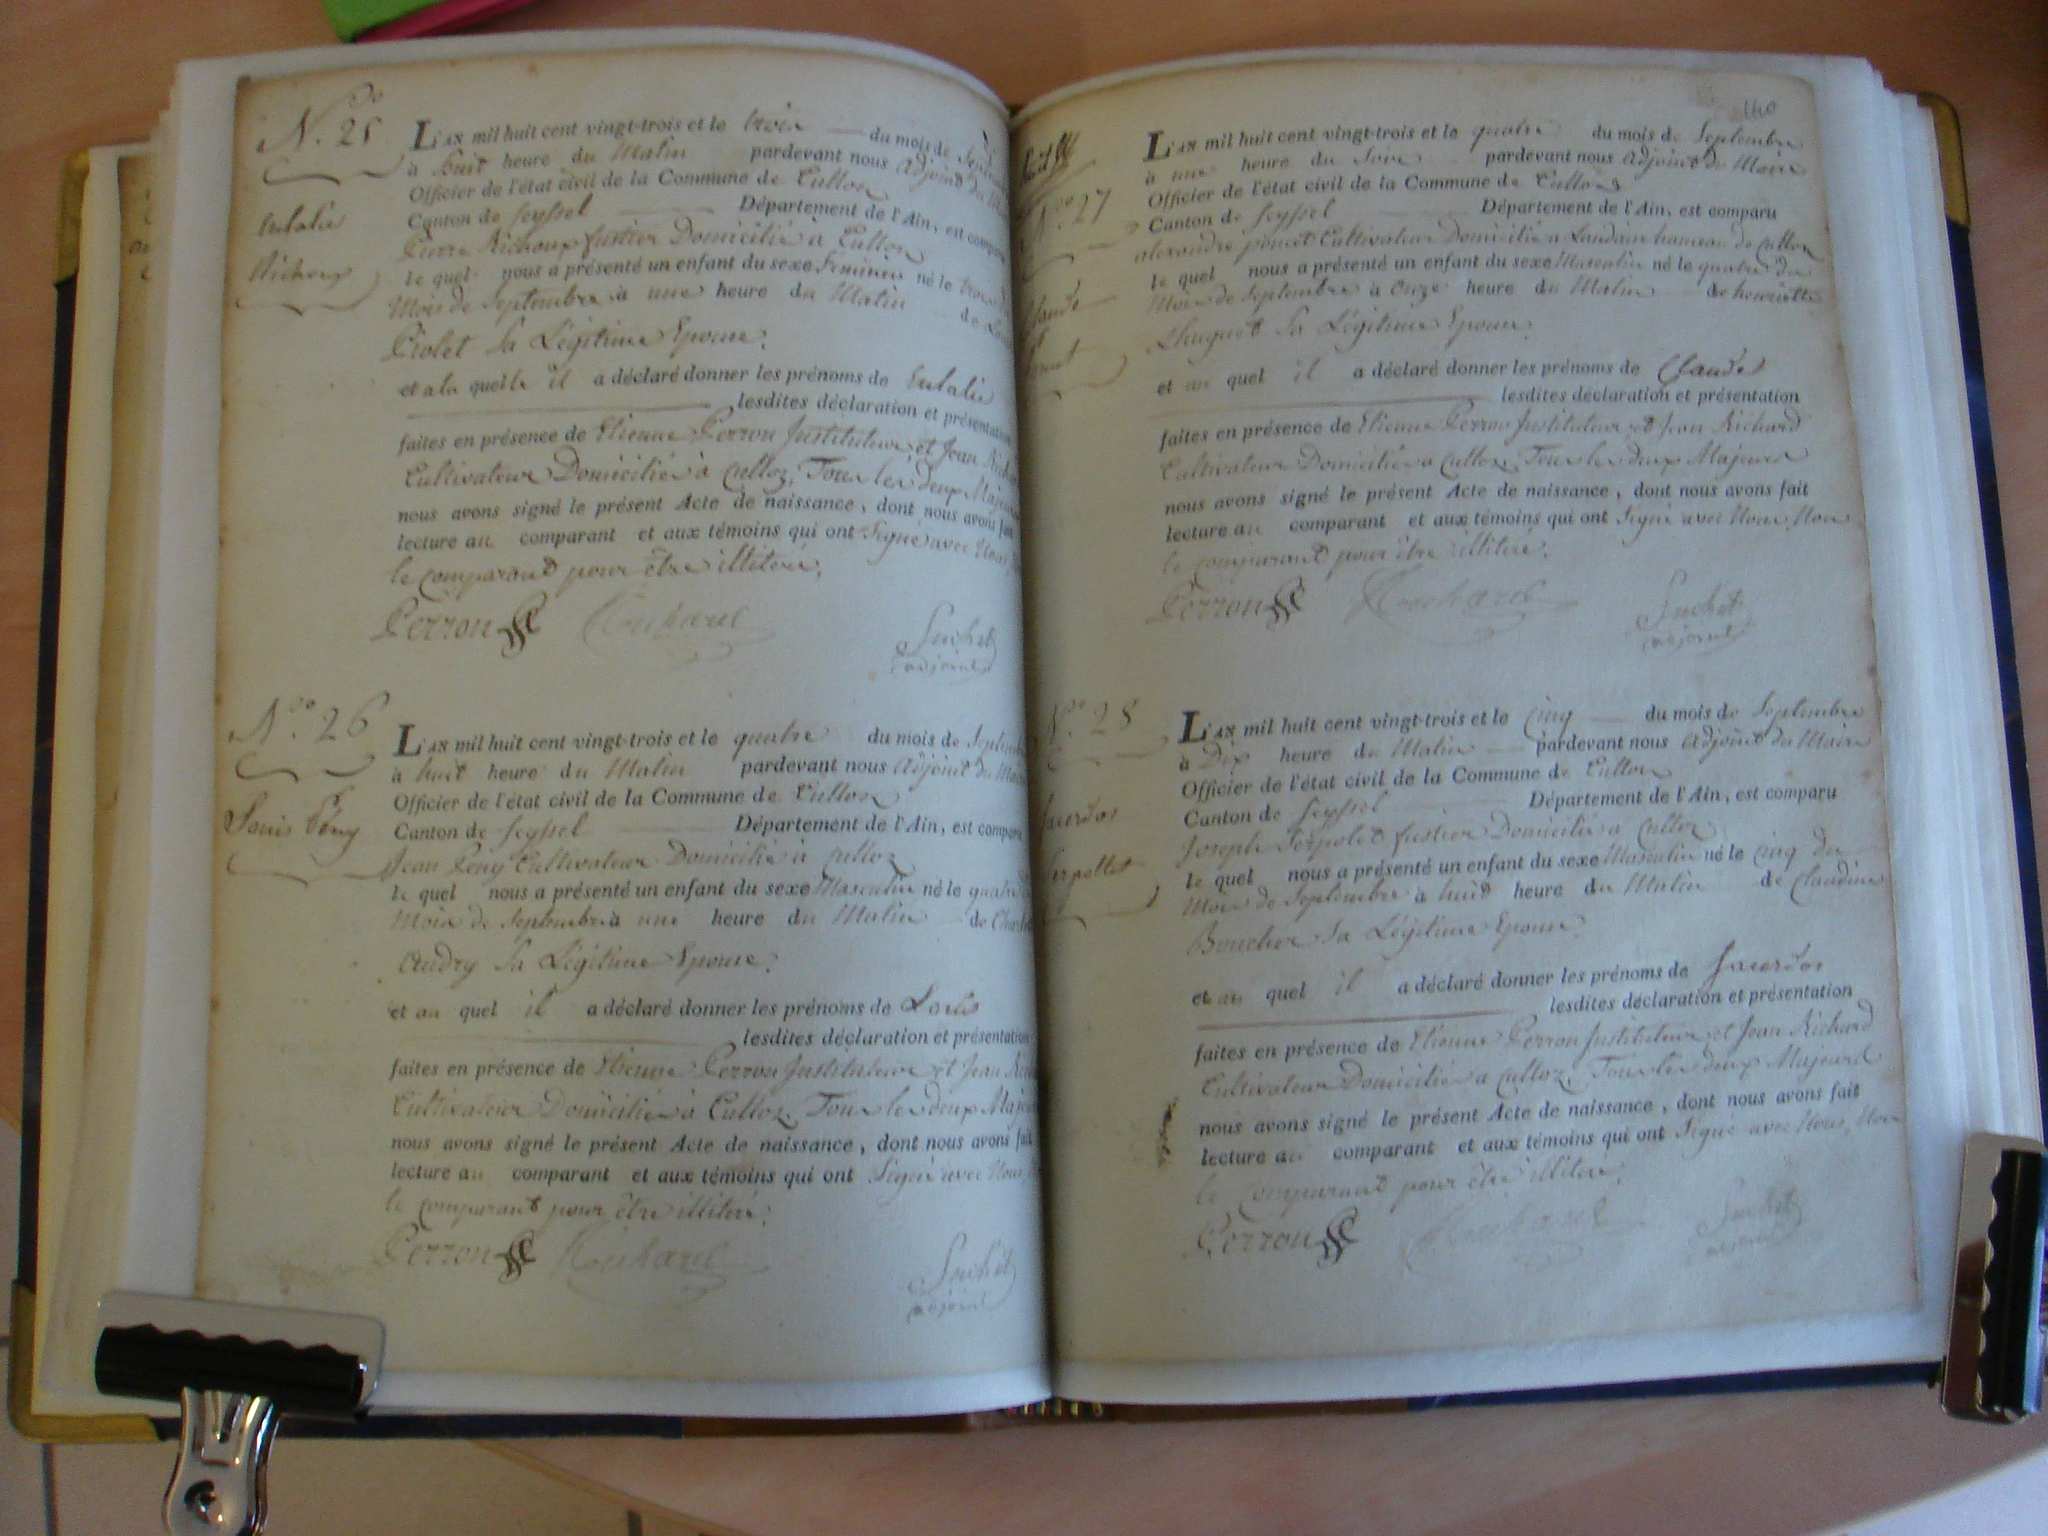 N.ro 25
Eulalie
Richoux
L'AN mil huit cent vingt-trois et le trois du mois de
à huit heure du Matin pardevant nous Adjoint du
Officier de l'état civil de la Commune de Culloz
Canton de Seyssel Département de l'Ain, est comparu
Pierre Richoux fustier Domicilié à Culloz
le quel nous a présenté un enfant du sexe Feminin né le trois
Mois de Septembre à une heure du Matin de
Piolet Sa Légitime Epouse.
et a la quelle il a déclaré donner les prénoms de Eulalie
lesdites déclaration et présentation
faites en présence de Etienne Perron Instituteur et Jean
Cultivateur Domiciliés à Culloz, Tous les deux Majeurs
nous avons signé le présent Acte de naissance, dont nous avons fait
lecture au comparant et aux témoins qui ont Signé avec Nous,
le comparant pour être illitéré.
Perron Richard Suchet
adjoint
N.ro 26
Louis Pény
L'AN mil huit cent vingt-trois et le quatre du mois de Septembre
à huit heure du Matin pardevant nous Adjoint du Maire
Officier de l'état civil de la Commune de Culloz
Canton de Seyssel Département de l'Ain, est comparu
Jean Peny Cultivateur Domicilié à Culloz
le quel nous a présenté un enfant du sexe Masculin né le quatre
Mois de Septembre à une heure du Matin de
Audry Sa Légitime Epouse.
et au quel il a déclaré donner les prénoms de Louis
lesdites déclaration et présentation
faites en présence de Etienne Perron Instituteur et Jean
Cultivateur Domiciliés à Culloz, Tous les deux
nous avons signé le présent Acte de naissance, dont nous avons fait
lecture au comparant et aux témoins qui ont Signé avec Nous,
le comparant pour être illitéré.
Perron Richard Suchet
adjoint
140
N.ro 27
Claude
L'AN mil huit cent vingt-trois et le quatre du mois de Septembre
à une heure du Soir pardevant nous Adjoint du Maire
Officier de l'état civil de la Commune de Culloz
Canton de Seyssel Département de l'Ain, est comparu
alexandre poncet Cultivateur Domicilié a Landaize hameau de Culloz
le quel nous a présenté un enfant du sexe Masculin né le quatre du
Mois de Septembre à Onze heure du Matin de henriette
Sa Légitime Epouse.
et au quel il a déclaré donner les prénoms de Claude
lesdites déclaration et présentation
faites en présence de Etienne Perron Instituteur et Jean Richard
Cultivateur Domiciliés à Culloz, Tous les deux Majeurs
nous avons signé le présent Acte de naissance, dont nous avons fait
lecture au comparant et aux témoins qui ont Signé avec Nous, Non
le comparant pour être illitéré.
Perron Richard Suchet
adjoint
N.ro 28
Sacerdos
Serpollet
L'AN mil huit cent vingt-trois et le cinq du mois de Septembre
à Dix heure du Matin pardevant nous Adjoint du Maire
Officier de l'état civil de la Commune de Culloz
Canton de Seyssel Département de l'Ain, est comparu
Joseph Serpolet fustier Domicilié a Culloz
le quel nous a présenté un enfant du sexe Masculin né le cinq du
Mois de Septembre à huit heure du Matin de Claudine
Boucher Sa Légitime Epouse.
et au quel il a déclaré donner les prénoms de Sacerdos
lesdites déclaration et présentation
faites en présence de Etienne Perron Instituteur et Jean Richard
Cultivateur Domiciliés à Culloz, Tous les deux Majeurs
nous avons signé le présent Acte de naissance, dont nous avons fait
lecture au comparant et aux témoins qui ont Signé avec Nous, Non
le comparant pour être illitéré.
Perron Richard Suchet
adjoint